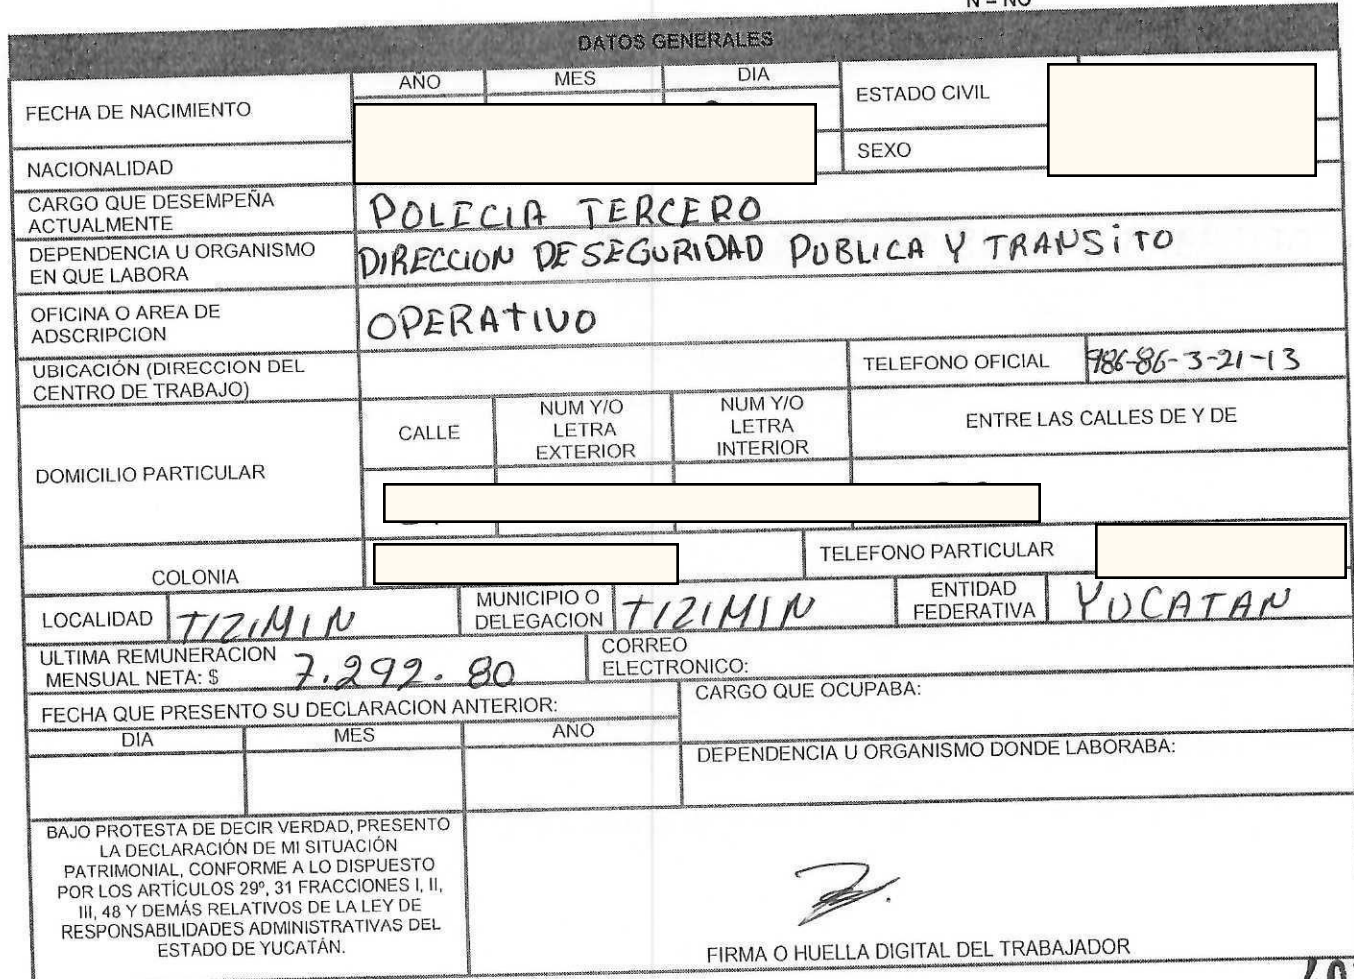 N = NO
DATOS GENERALES
FECHA DE NACIMIENTO
AÑO MES DIA
ESTADO CIVIL
NACIONALIDAD
SEXO
CARGO QUE DESEMPEÑA
ACTUALMENTE
POLICIA TERCERO
DEPENDENCIA U ORGANISMO
EN QUE LABORA
DIRECCION DE SEGURIDAD PUBLICA Y TRANSITO
OFICINA O AREA DE
ADSCRIPCION
OPERATIVO
UBICACIÓN (DIRECCION DEL
CENTRO DE TRABAJO)
TELEFONO OFICIAL 986-86-3-21-13
DOMICILIO PARTICULAR
CALLE
NUM Y/O
LETRA
EXTERIOR
NUM Y/O
LETRA
INTERIOR
ENTRE LAS CALLES DE Y DE
COLONIA
TELEFONO PARTICULAR
LOCALIDAD TIZIMIN
MUNICIPIO O
DELEGACION
TIZIMIN
ENTIDAD
FEDERATIVA
YUCATAN
ULTIMA REMUNERACION
MENSUAL NETA: $ 7.292.80
CORREO
ELECTRONICO:
FECHA QUE PRESENTO SU DECLARACION ANTERIOR:
CARGO QUE OCUPABA:
DIA MES AÑO
DEPENDENCIA U ORGANISMO DONDE LABORABA:
BAJO PROTESTA DE DECIR VERDAD, PRESENTO
LA DECLARACIÓN DE MI SITUACIÓN
PATRIMONIAL, CONFORME A LO DISPUESTO
POR LOS ARTÍCULOS 29º, 31 FRACCIONES I, II,
III, 48 Y DEMÁS RELATIVOS DE LA LEY DE
RESPONSABILIDADES ADMINISTRATIVAS DEL
ESTADO DE YUCATÁN.
FIRMA O HUELLA DIGITAL DEL TRABAJADOR